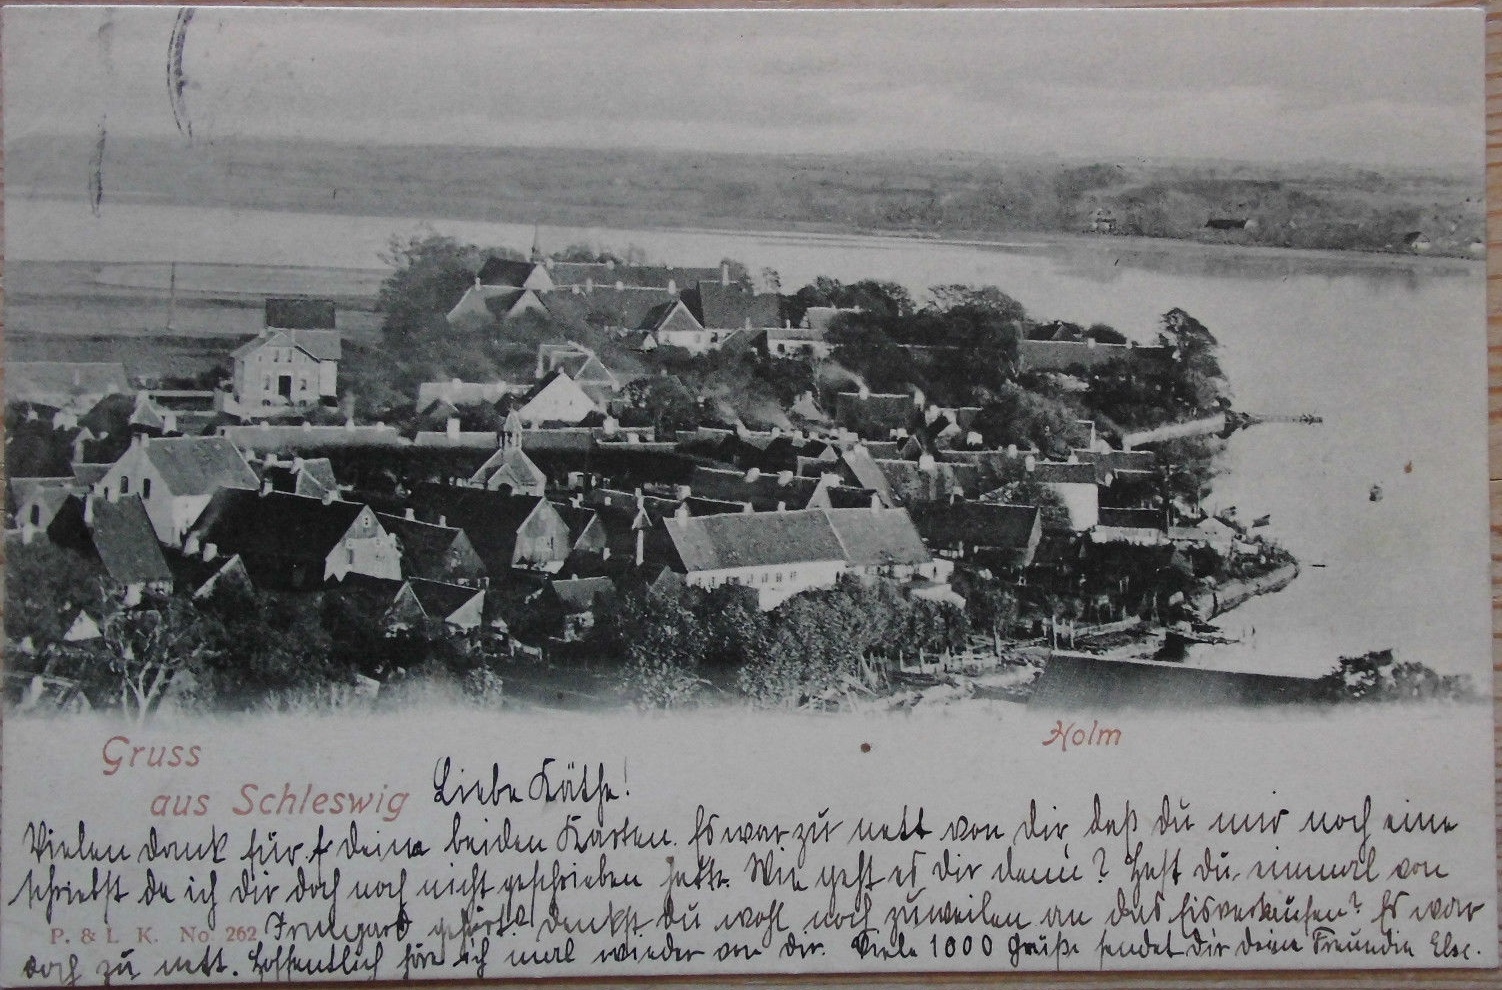 Gruss
aus Schleswig
Holm
Liebe Käthe!
Vielen Dank für deine beiden Karten. Es war zu nett von dir, daß du mir noch eine
schriebst da ich dir doch noch nicht geschrieben hatte. Wie geht es dir denn? Hast du einmal von
P. & L. K. No. 262
Irmgard gehört? Denkst du wohl noch zuweilen an das Eisverkaufen? Es war
doch zu nett. Hoffentlich höre ich mal wieder von dir. Viele 1000 Grüße sendet dir deine Freundin Else.